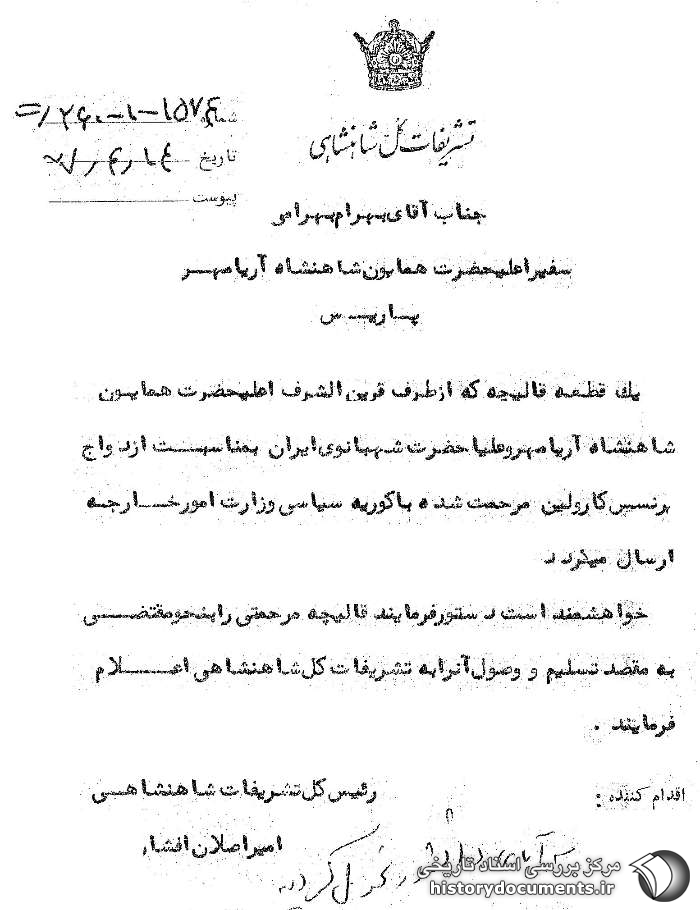 تشریفات کل شاهنشاهی
شماره ۱۵۷۴-۱-۲۶۰/
تاریخ
پیوست
جناب آقای بهرام بهرامی
سفیر اعلیحضرت همایون شاهنشاه آریامهر
پاریس
یك قطعه قالیچه که ازطرف قرین الشرف اعلیحضرت همایون
شاهنشاه آریامهر وعلیاحضرت شهبانوی ایران بمناسبت ازدواج
پرنسس کارولین مرحمت شده باکوریه سیاسی وزارت امورخارجه
ارسال میگردد
خواهشمند است دستورفرمایند قالیچه مرحمتی رابنحومقتضی
به مقصد تسلیم و وصول آنرابه تشریفات کل شاهنشاهی اعلام
فرمایند .
رئیس کل تشریفات شاهنشاهی
امیراصلان افشار
اقدام کننده :
تحویل گردد
مرکز بررسی اسناد تاریخی
historydocuments.ir